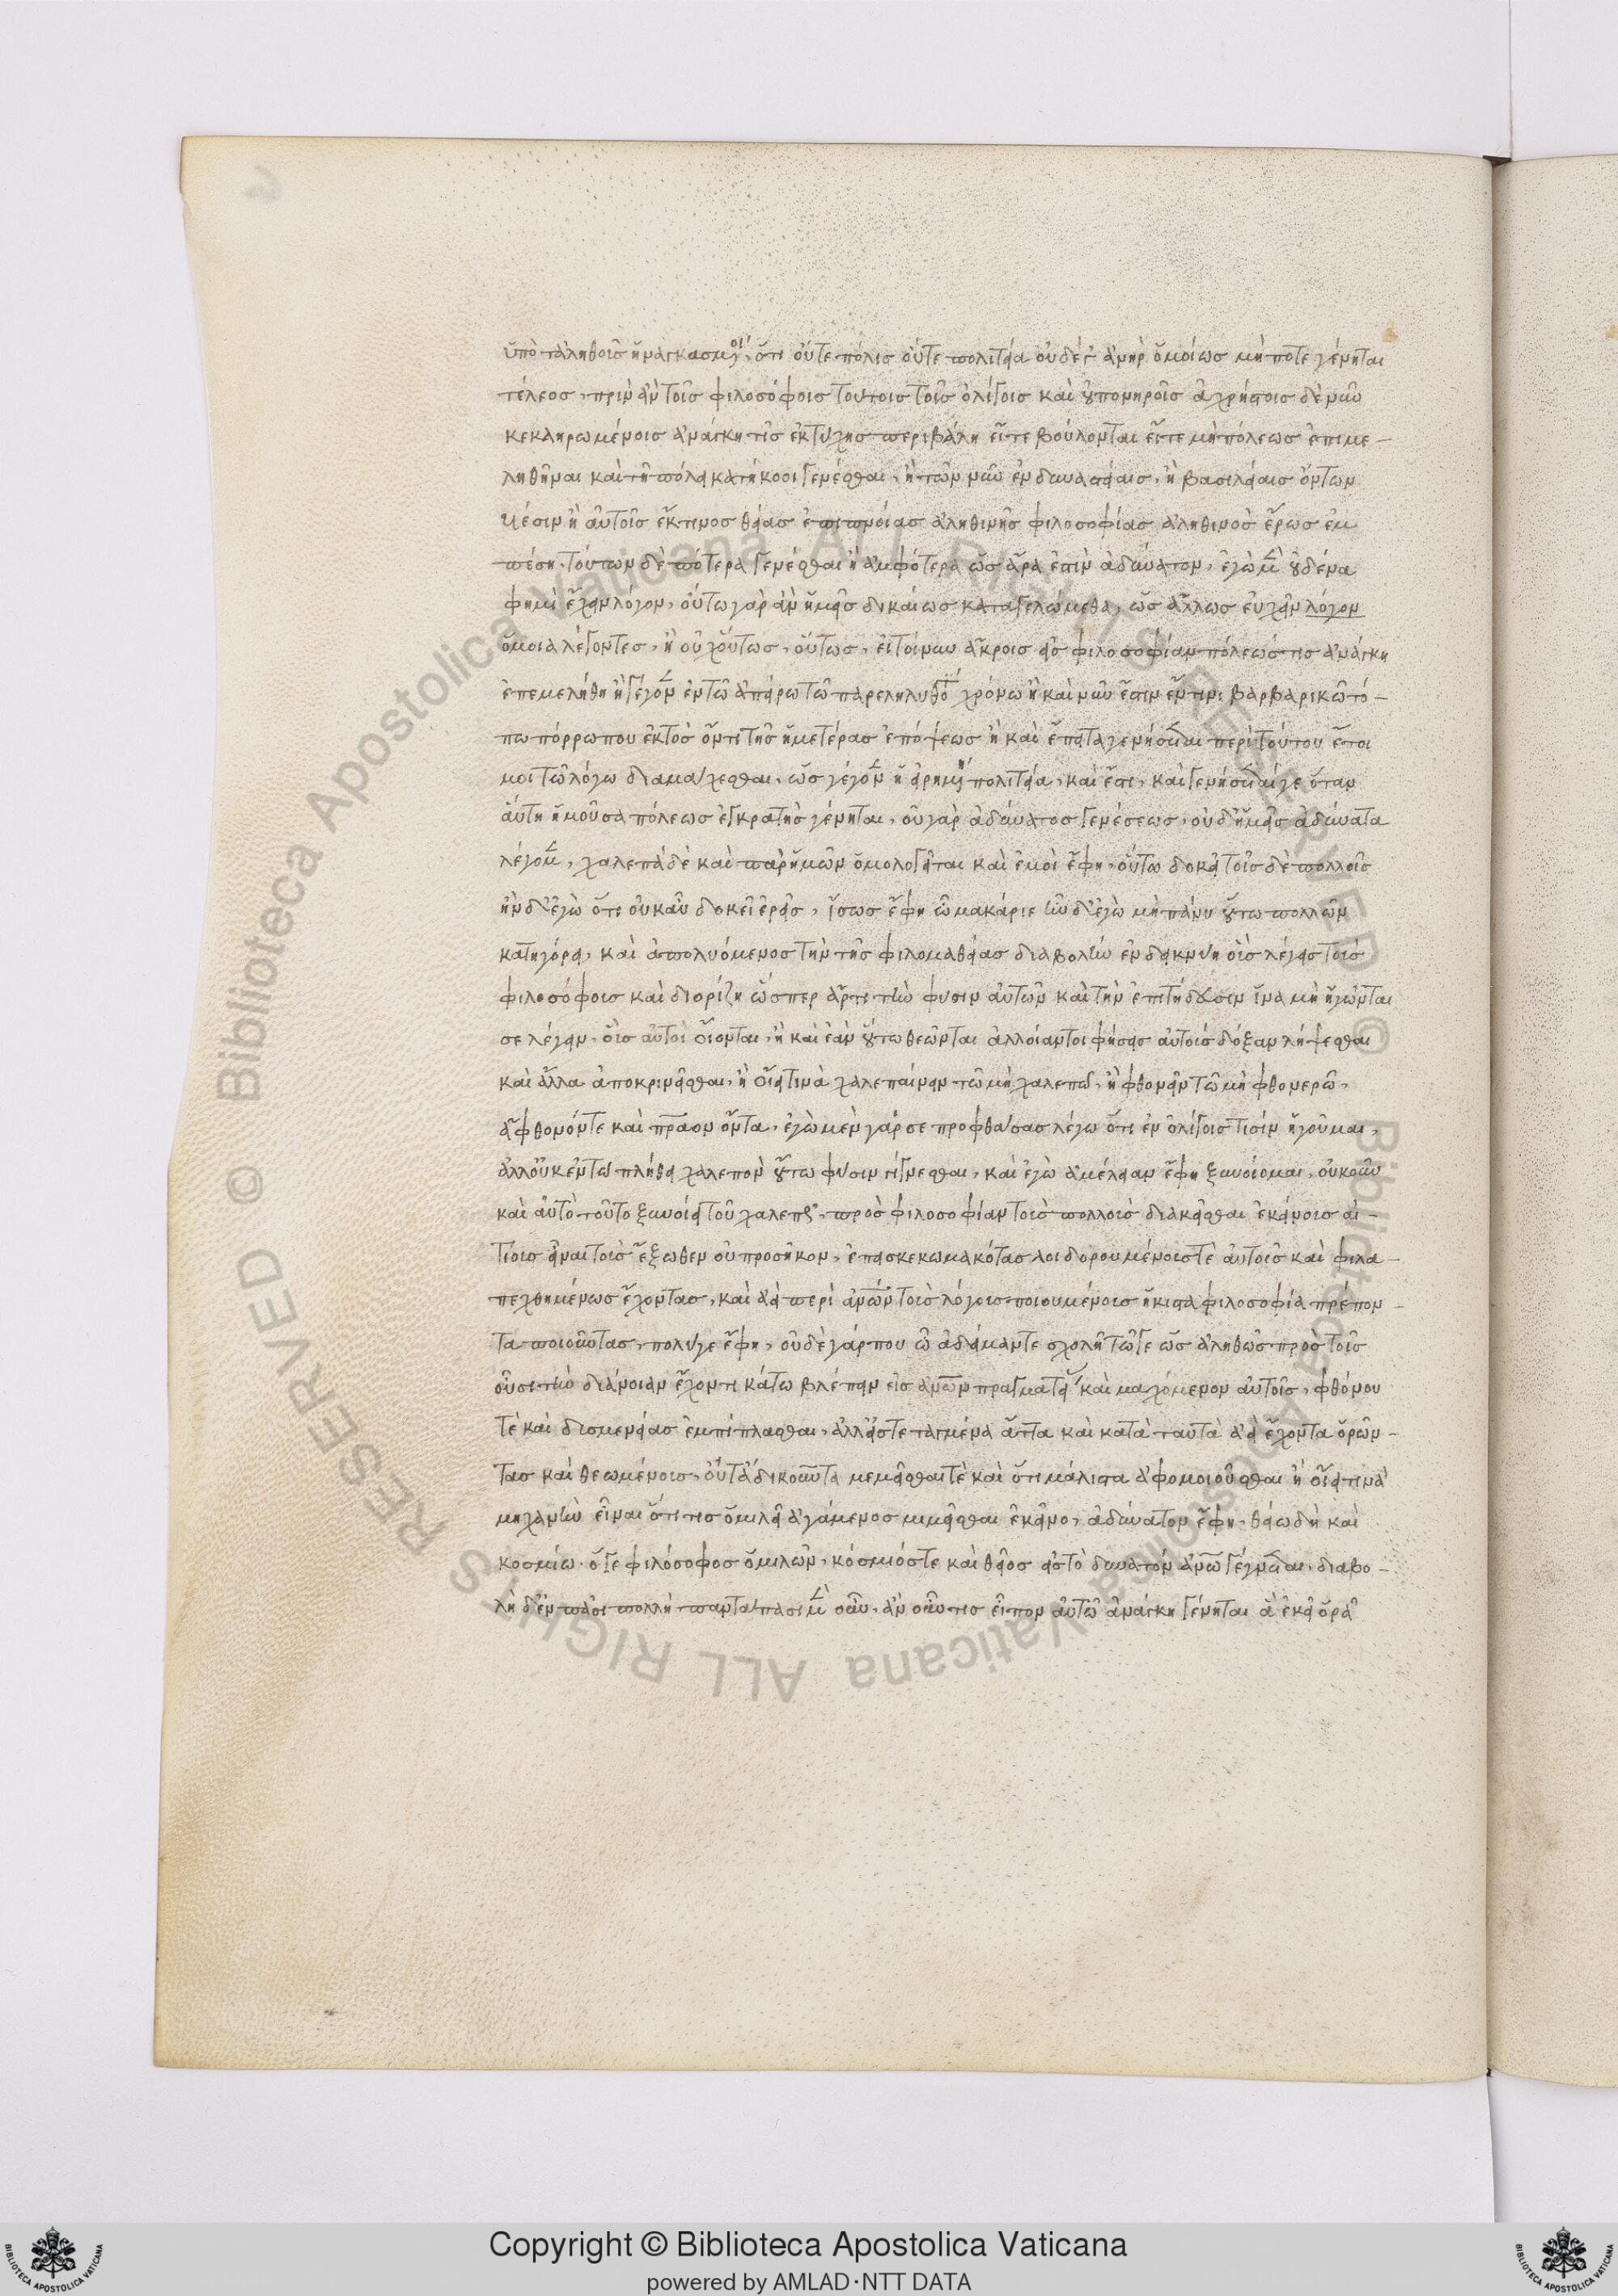 ὑπὸ τἀληθοῦς ἠναγκασμένοι, ὅτι οὔτε πόλις οὔτε πολιτεία οὐδέ γ' ἀνὴρ ὁμοίως μή ποτε γένηται
τέλεος, πρὶν ἂν τοῖς φιλοσόφοις τούτοις τοῖς ὀλίγοις καὶ οὐ πονηροῖς ἀχρήστοις δὲ νῦν
κεκληρωμένοις ἀνάγκη τις ἐκ τύχης περιβάλη εἴτε βούλονται εἴτε μὴ πόλεως ἐπιμε-
ληθῆναι καὶ τῇ πόλει κατήκοοι γενέσθαι, ἢ τῶν νῦν ἐν δυναστείαις, ἢ βασιλείαις ὄντων
υἱέσιν ἢ αὐτοῖς ἔκ τινος θείας ἐπιπνοίας ἀληθινῆς φιλοσοφίας ἀληθινὸς ἔρως ἐμ
πέση. τούτων δὲ πότερα γενέσθαι ἢ ἀμφότερα ὡς ἄρα ἐστὶν ἀδύνατον, ἐγὼ μὲν οὐδένα
φημὶ ἔχειν λόγον, οὕτω γὰρ ἂν ἡμεῖς δικαίως καταγελώμεθα, ὡς ἄλλως εὐχαῖς λόγον
ὅμοια λέγοντες, ἢ οὐχ οὕτως, οὕτως, εἰ τοίνυν ἄκροις εἰς φιλοσοφίαν πόλεώς τις ἀνάγκη
ἐπεμελήθη ἢ γέγονεν ἐν τῷ ἀπείρῳ τῷ παρεληλυθότι χρόνῳ ἢ καὶ νῦν ἔστιν ἔν τινι βαρβαρικῷ τό-
πῳ πόρρω που ἐκτὸς ὄντι τῆς ἡμετέρας ἐπόψεως ἢ καὶ ἔπειτα γενήσεται περὶ τούτου ἕτοι
μοι τῷ λόγῳ διαμάχεσθαι, ὡς γέγονεν ἡ εἰρημένη πολιτεία, καὶ ἔστι, καὶ γενήσεταί γε ὅταν
αὕτη ἡ μοῦσα πόλεως ἐγκρατὴς γένηται, οὐ γὰρ ἀδύνατος γενέσεως, οὐδ' ἡμεῖς ἀδύνατα
λέγομεν, χαλεπὰ δὲ καὶ παρ' ἡμῶν ὁμολογεῖται καὶ ἐμοὶ ἔφη, οὕτω δοκεῖ τοῖς δὲ πολλοῖς
ἦν δ' ἐγὼ ὅτι οὐκ αὖ δοκεῖ ἐρεῖς, ἴσως ἔφη ὦ μακάριε ἦν δ' ἐγὼ μὴ πάνυ οὕτω πολλῶν
κατηγόρει, καὶ ἀπολυόμενος τὴν τῆς φιλομαθείας διαβολὴν ἐνδεικνύη οἵς λέγεις τοὶς
φιλοσόφοις καὶ διορίζη ὥσπερ ἄρτι τὴν φύσιν αὐτῶν καὶ τὴν ἐπιτήδευσιν ἵνα μὴ ἡγῶνται
σε λέγειν. οἷς αὐτοὶ οἴονται, ἢ καὶ ἐὰν οὕτω θεῶνται ἀλλοίαν τοι φήσεις αὐτοὶς δόξαν λήψεσθαι
καὶ ἄλλα ἀποκρινεῖσθαι, ἢ οἴει τινὰ χαλεπαίνειν τῷ μὴ χαλεπῷ, ἢ φθονεῖν τῷ μὴ φθονερῷ,
ἄφθονόν τε καὶ πρᾶον ὄντα, ἐγὼ μὲν γάρ σε προφθάσας λέγω ὅτι ἐν ὀλίγοις τισὶν ἡγοῦμαι,
ἀλλ' οὐκ ἐν τῷ πλήθει χαλεπὸν οὕτω φύσιν γίγνεσθαι, καὶ ἐγὼ ἀμέλειαν ἔφη ξυνοίομαι, οὐκοῦν
καὶ αὐτὸ τοῦτο ξυνοίει τοῦ χαλεποῦ, πρὸς φιλοσοφίαν τοὺς πολλοὺς διακεῖσθαι ἐκείνοις αἰ-
τίοις εἶναι τοὺς ἔξωθεν οὐ προσῆκον, ἐπεισκεκωμακότας λοιδορουμένοις τὲ αὐτοῖς καὶ φιλα-
πεχθημένως ἔχοντας, καὶ ἀεὶ περὶ ἀνθρώπων τοὺς λόγοις ποιουμένοις ἥκιστα φιλοσοφία πρέπον-
τα ποιοῦντας, πολύ γε ἔφη, οὐδὲ γάρ που ὦ ἀδάμαντε σχολὴ τῷ γε ὡς ἀληθῶς πρὸς τοῖς
οὖσι τὴν διάνοιαν ἔχοντι κάτω βλέπειν εἰς ἀνθρώπων πραγματείας καὶ μαχόμενον αὐτοῖς, φθόνου
τὲ καὶ δυσμενείας ἐμπίπλασθαι, ἀλλ' εἴς τεταγμένα ἄττα καὶ κατὰ ταῦτὰ ἀεὶ ἔχοντα ὁρῶν-
τας καὶ θεωμένοις, οὔτ' ἀδικοῦντα μεμεῖσθαι τὲ καὶ ὅτι μάλιστα ἀφομοιοῦσθαι ἢ οἴει τινὰ
μηχανὴν εἶναι ὅτῳ τις ὁμιλεῖ ἀγάμενος μιμεῖσθαι ἐκεῖνο, ἀδύνατον ἔφη, θείῳ δὴ καὶ
κοσμίῳ. ὅ γε φιλόσοφος ὁμιλῶν, κόσμιός τε καὶ θεῖος εἰς τὸ δυνατὸν ἀνθρώπῳ γίγνεται, διαβο-
λὴ δ' ἐν πᾶσι πολλὴ παντάπασι μὲν οὖν, ἂν οὖν τις εἶπον αὐτῷ ἀνάγκη γένηται ἃ ἐκεῖ ὁρᾷ